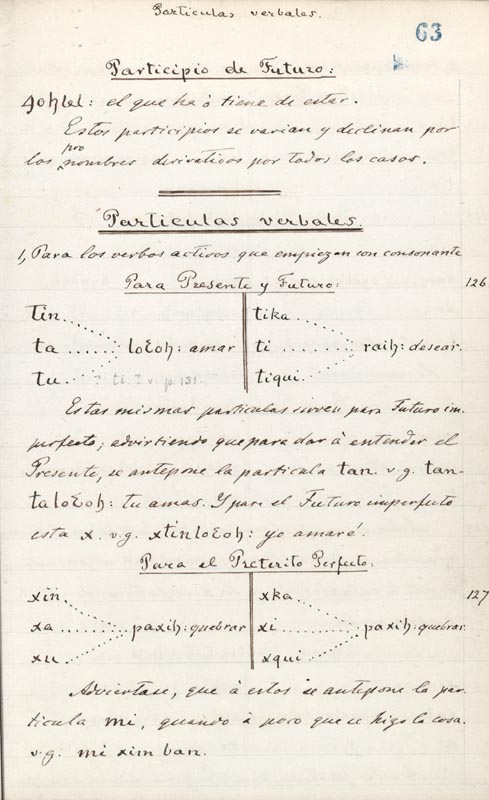 Particulas verbales.
63
Participio de Futuro:
4ohlel: el que ha ò tiene de estar.
Estos participios se varian y declinan por
los pronombres derivativos por todos los casos.
Particulas verbales.
1, Para los verbos activos que empiezan con consonante
Para Presente y Futuro: 126
tin tika
ta loɛoh: amar ti raih: desear.
tu ? ti. ? v. p. 131. tiqui
Estas mismas particulas sirven para Futuro im-
perfecto; advirtiendo que para dar à entender el
Presente, se antepone la particula tan. v.g. tan-
taloɛoh: tu amas. Y para el Futuro imperfecto
esta x. v.g. xtinloɛoh: yo amaré.
Para el Preterito Perfecto:
xin xka 127
xa paxih: quebrar xi paxih: quebrar
xu xqui
Adviertase, que à estos se antepone la par-
ticula mi, quando à poco que se hizo la cosa.
v.g. mi xim ban.